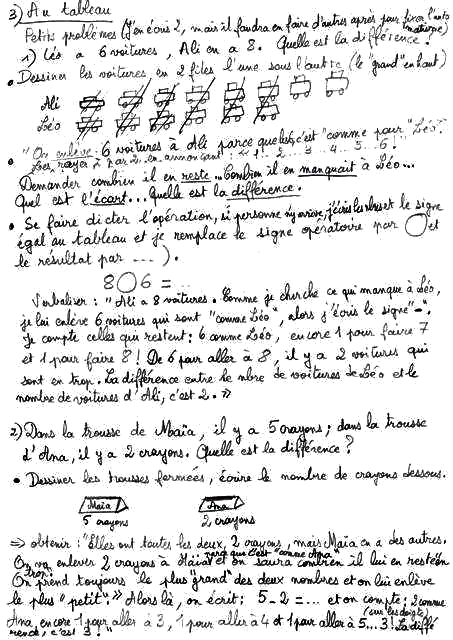 3) Au tableau
Petits problèmes (J'en écris 2, mais il faudra en faire d'autres après pour fixer l'automatisme)
1) Léo a 6 voitures, Ali en a 8. Quelle est la différence ?
• Dessiner les voitures, en 2 files l'une sous l'autre (le "grand" en haut)
Ali
Léo
• "On enlève 6 voitures à Ali parce que c'est "comme pour "Léo".
Les rayer 2 par 2 en annonçant 1... 2... 3... 4... 5... 6 !"
Demander combien il en reste... Combien il en manquait à Léo...
Quel est l'écart... Quelle est la différence.
• Se faire dicter l'opération, si personne n'y arrive, j'écris les nbres et le signe
égal au tableau et je remplace le signe opératoire par ◯ et
le résultat par ---).
8 ◯ 6 = ...
Verbaliser : "Ali a 8 voitures. Comme je cherche ce qui manque à Léo,
je lui enlève 6 voitures qui sont "comme Léo", alors j'écris le signe "-".
Je compte celles qui restent : 6 comme Léo, encore 1 pour faire 7
et 1 pour faire 8 ! De 6 pour aller à 8, il y a 2 voitures qui
sont en trop. La différence entre le nbre de voitures de Léo et le
nombre de voitures d'Ali, c'est 2. »
2) Dans la trousse de Maïa, il y a 5 crayons ; dans la trousse
d'Ana, il y a 2 crayons. Quelle est la différence ?
• Dessiner les trousses fermées, écrire le nombre de crayons dessous.
Maïa Ana
5 crayons 2 crayons
⇒ obtenir : "Elles ont toutes les deux, 2 crayons, mais Maïa en a des autres.
On va enlever 2 crayons à Maïa parce que c'est "comme Ana" et on saura combien il lui en reste en trop.
On prend toujours le plus "grand" des deux nombres et on lui enlève
le plus "petit". » Alors là, on écrit : 5 - 2 = ... et on compte : 2 comme
Ana, encore 1 pour aller à 3, 1 pour aller à 4 et 1 pour aller à 5... 3 ! (sur les doigts) La diffé
rence, c'est 3 !"